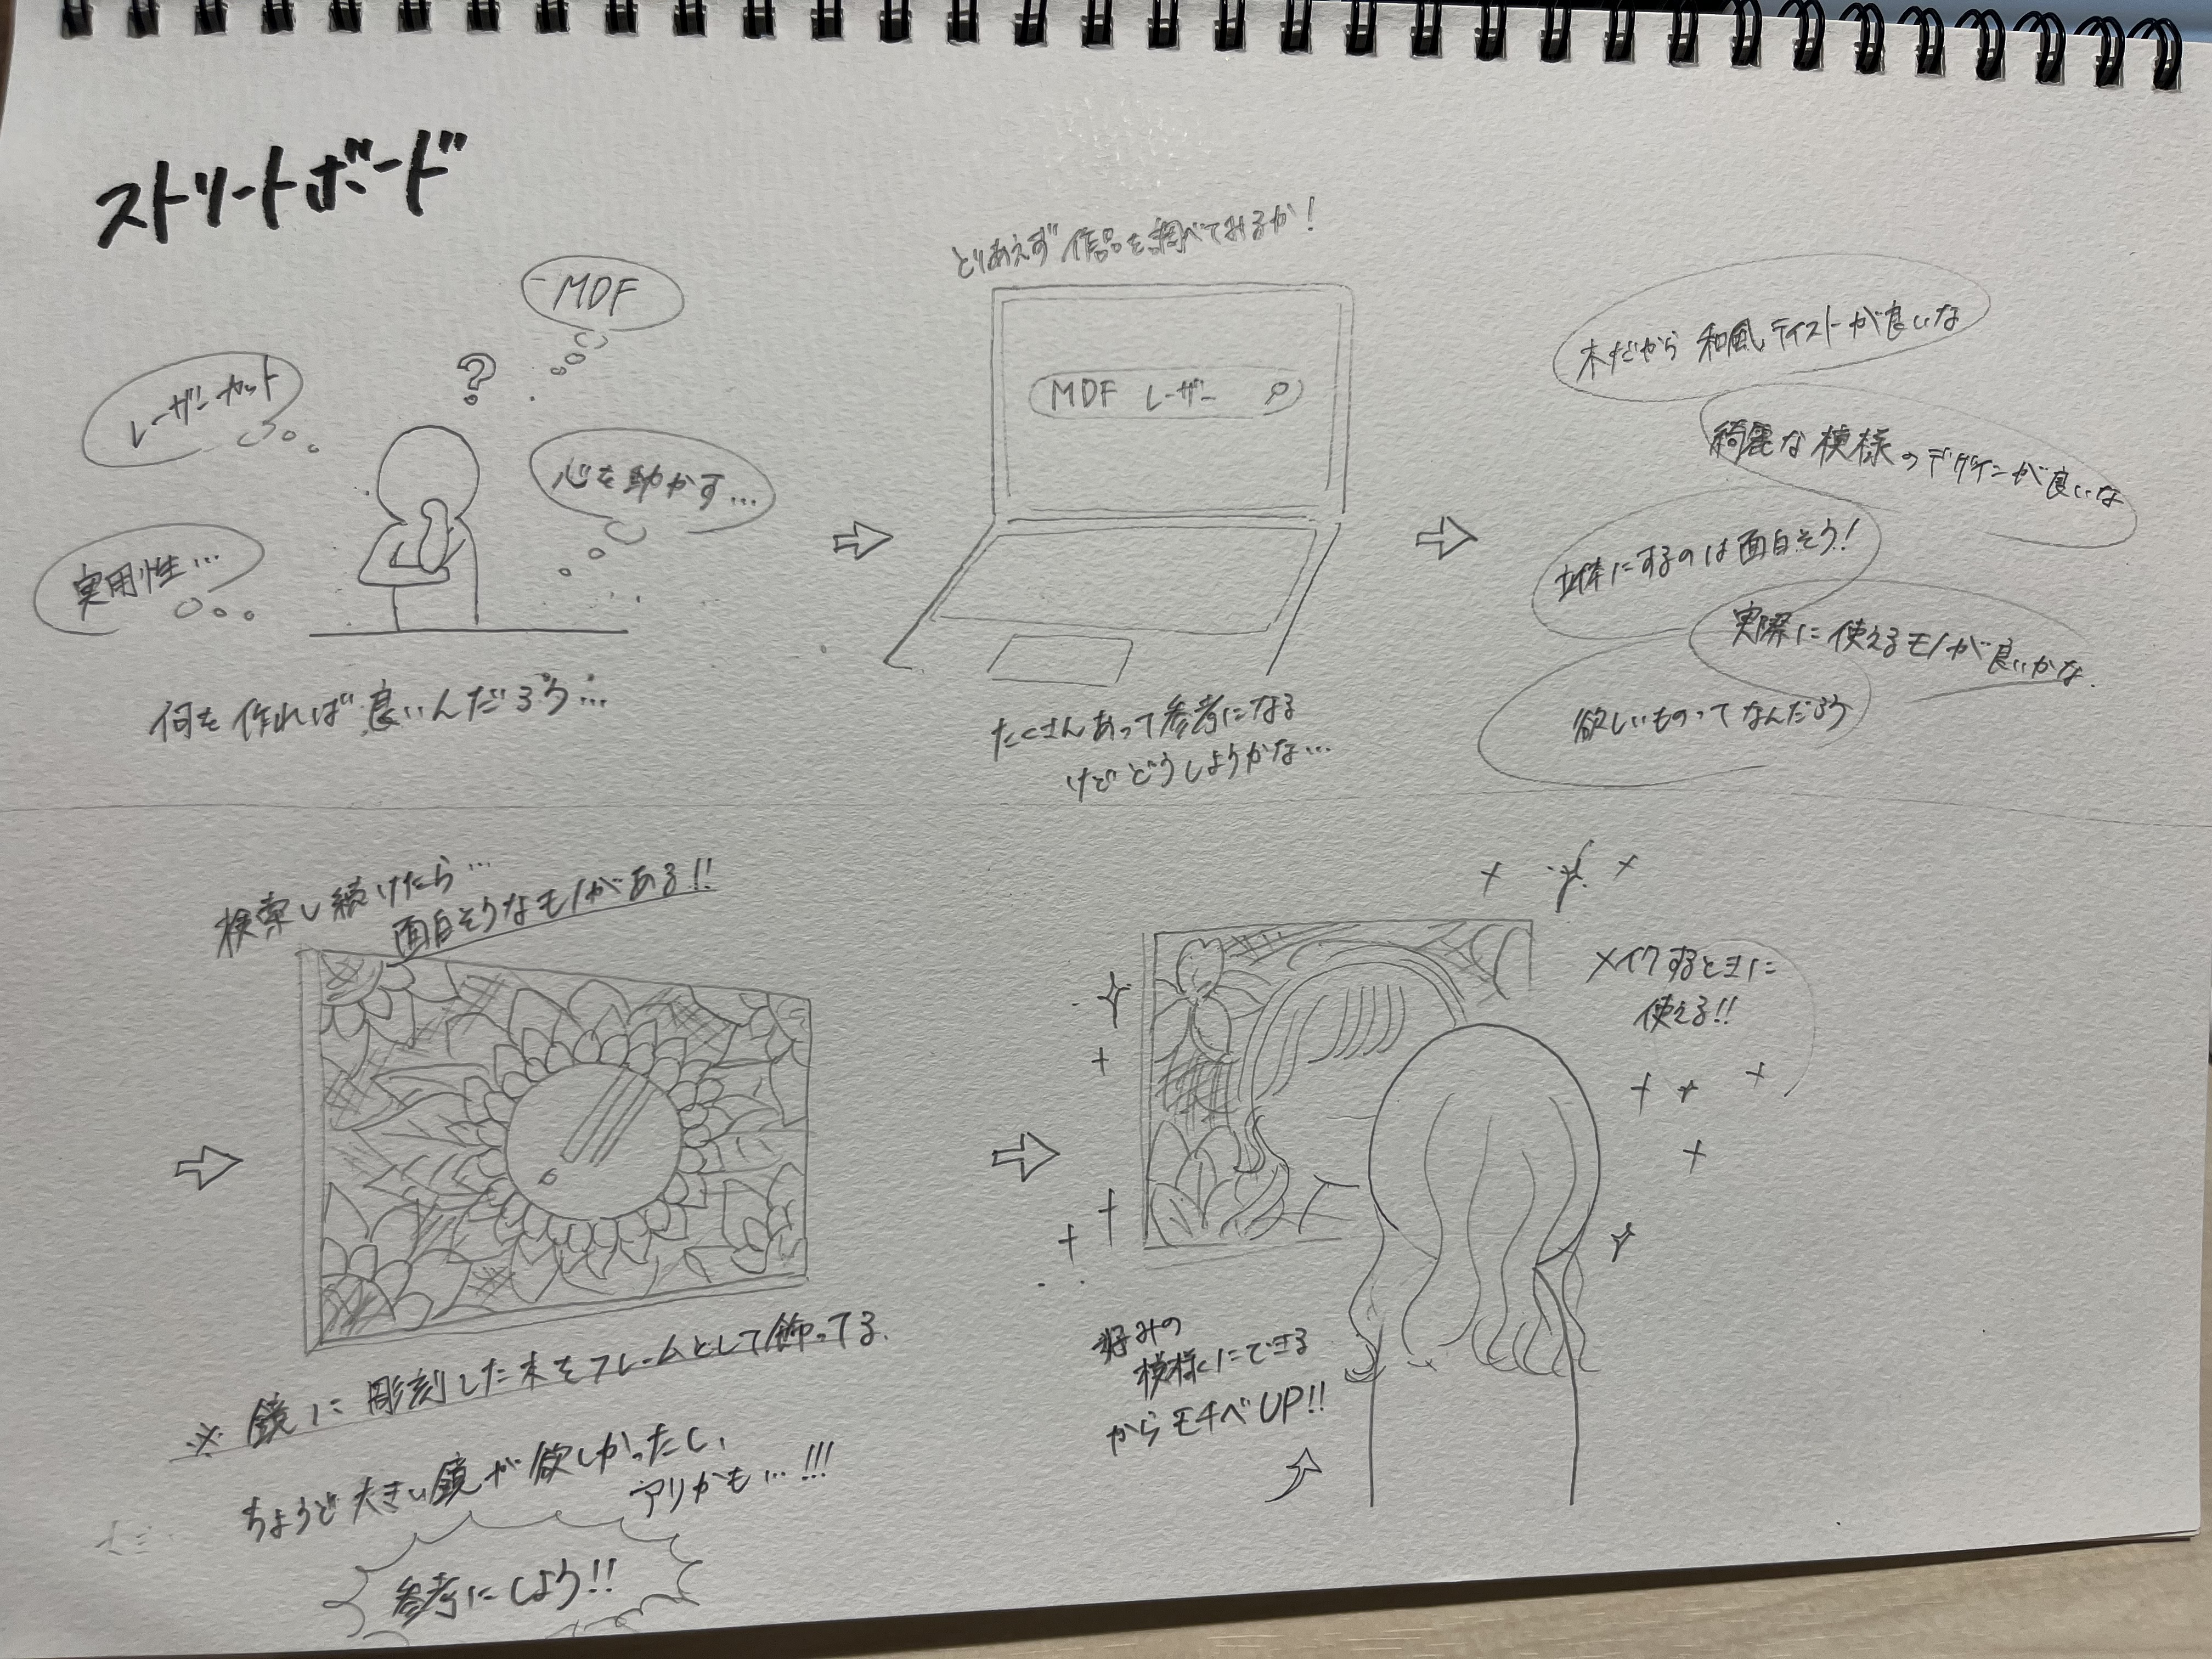 ストリートボード
MDF
レーザーカット
?
心を助かす…
実用性…
何を作れば良いんだろう…
とりあえず作品を調べてみるか!
MDF レーザー
たくさんあって参考になる
けどどうしようかな…
木だから和風テイストが良いな
綺麗な模様のデザインが良いな
立体にするのは面白そう!
実際に使えるモノが良いかな
欲しいものってなんだろう
検索し続けたら…
面白そうなモノがある!!
※鏡に彫刻した木をフレームとして飾ってる.
ちょうど大きい鏡が欲しかったし、
アリかも…!!!
参考にしよう!!
メイクするときに
使える!!
好みの
模様にできる
からモチベUP!!